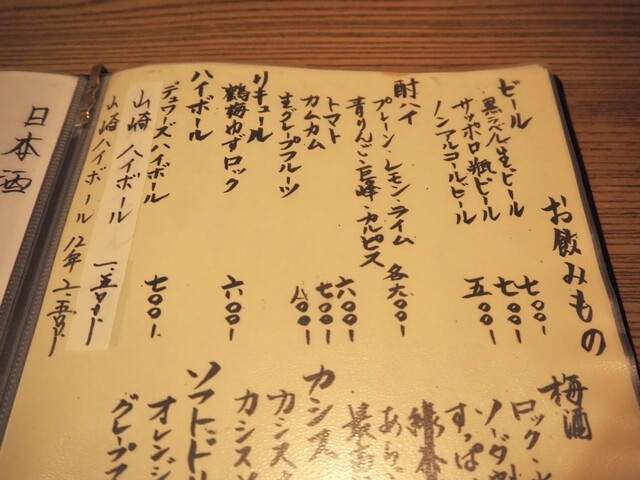 お飲みもの
ビール
黒ラベル生ビール 七〇〇-
サッポロ瓶ビール 七〇〇-
ノンアルコールビール 五〇〇-
酎ハイ
プレーン・レモン・ライム 各六〇〇-
青りんご・巨峰・カルピス
トマト 六〇〇-
カムカム 七〇〇-
生グレープフルーツ 八〇〇-
リキュール
鶴梅ゆずロック 六〇〇-
ハイボール
デュワーズハイボール 七〇〇-
山崎 ハイボール 一、五〇〇-
山崎 ハイボール 12年 二、五〇〇-
梅酒
ロック・
ソーダ
すっぱ
あら
カシス
カシス
カシス
ソフトドリ
オレンジ
グレープフ
日本酒